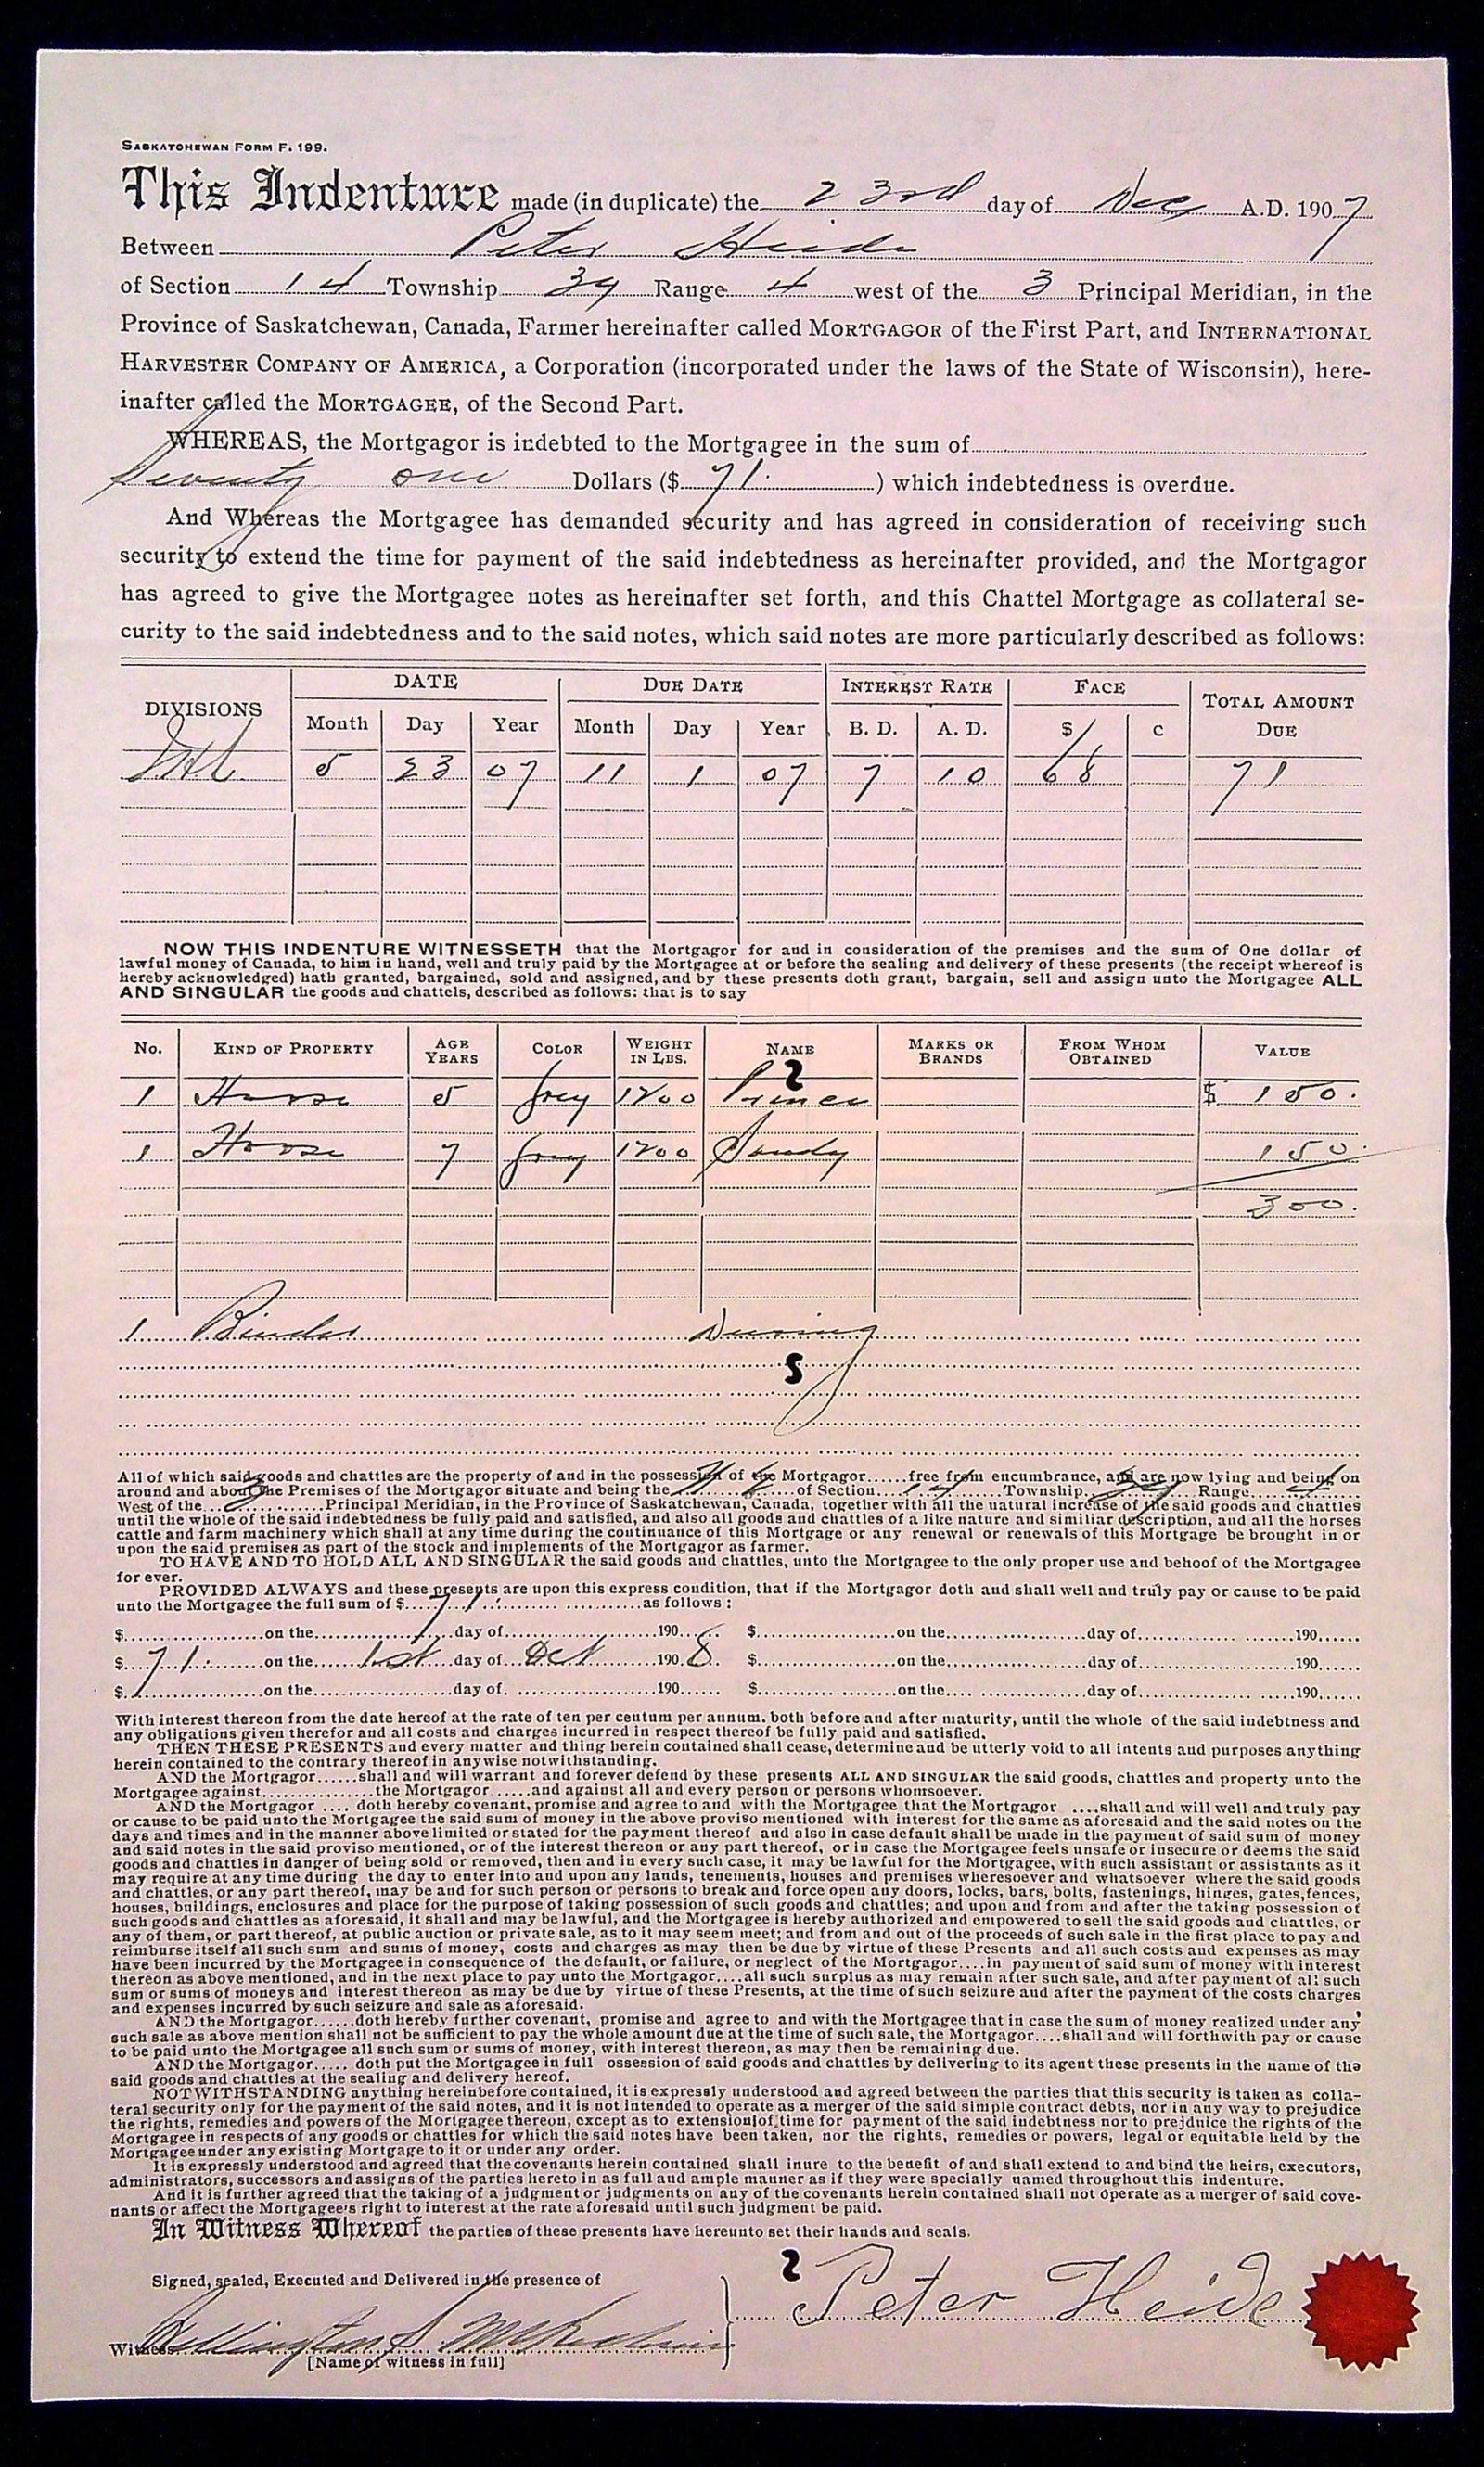 SASKATCHEWAN FORM F. 199.
This Indenture made (in duplicate) the 23rd day of Dec A.D. 1907
Between Peter Heide
of Section 14 Township 39 Range 4 west of the 3 Principal Meridian, in the
Province of Saskatchewan, Canada, Farmer hereinafter called MORTGAGOR of the First Part, and INTERNATIONAL
HARVESTER COMPANY OF AMERICA, a Corporation (incorporated under the laws of the State of Wisconsin), here-
inafter called the MORTGAGEE, of the Second Part.
WHEREAS, the Mortgagor is indebted to the Mortgagee in the sum of
Seventy one Dollars ($ 71. ) which indebtedness is overdue.
And Whereas the Mortgagee has demanded security and has agreed in consideration of receiving such
security to extend the time for payment of the said indebtedness as hereinafter provided, and the Mortgagor
has agreed to give the Mortgagee notes as hereinafter set forth, and this Chattel Mortgage as collateral se-
curity to the said indebtedness and to the said notes, which said notes are more particularly described as follows:
DIVISIONS DATE DUE DATE INTEREST RATE FACE TOTAL AMOUNT DUE
Month Day Year Month Day Year B. D. A. D. $ c
IHC 5 23 07 11 1 07 7 10 66 71
NOW THIS INDENTURE WITNESSETH that the Mortgagor for and in consideration of the premises and the sum of One dollar of
lawful money of Canada, to him in hand, well and truly paid by the Mortgagee at or before the sealing and delivery of these presents (the receipt whereof is
hereby acknowledged) hath granted, bargained, sold and assigned, and by these presents doth grant, bargain, sell and assign unto the Mortgagee ALL
AND SINGULAR the goods and chattels, described as follows: that is to say
No. KIND OF PROPERTY AGE YEARS COLOR WEIGHT IN LBS. NAME MARKS OR BRANDS FROM WHOM OBTAINED VALUE
1 Horse 5 Grey 1200 Prince $ 150.
1 Horse 7 Grey 1200 Sandy 150.
300.
1 Binder Deering
S
All of which said goods and chattles are the property of and in the possession of the Mortgagor......free from encumbrance, and are now lying and being on
around and about the Premises of the Mortgagor situate and being the of Section 14 Township 39 Range 4
West of the 3 Principal Meridian, in the Province of Saskatchewan, Canada, together with all the natural increase of the said goods and chattles
until the whole of the said indebtedness be fully paid and satisfied, and also all goods and chattles of a like nature and similiar description, and all the horses
cattle and farm machinery which shall at any time during the continuance of this Mortgage or any renewal or renewals of this Mortgage be brought in or
upon the said premises as part of the stock and implements of the Mortgagor as farmer.
TO HAVE AND TO HOLD ALL AND SINGULAR the said goods and chattles, unto the Mortgagee to the only proper use and behoof of the Mortgagee
for ever.
PROVIDED ALWAYS and these presents are upon this express condition, that if the Mortgagor doth and shall well and truly pay or cause to be paid
unto the Mortgagee the full sum of $ 71. as follows :
$ on the day of 190 $ on the day of 190
$ 71. on the 1st day of Oct 1908 $ on the day of 190
$ on the day of 190 $ on the day of 190
With interest thereon from the date hereof at the rate of ten per centum per annum. both before and after maturity, until the whole of the said indebtness and
any obligations given therefor and all costs and charges incurred in respect thereof be fully paid and satisfied.
THEN THESE PRESENTS and every matter and thing herein contained shall cease, determine and be utterly void to all intents and purposes anything
herein contained to the contrary thereof in anywise notwithstanding.
AND the Mortgagor......shall and will warrant and forever defend by these presents ALL AND SINGULAR the said goods, chattles and property unto the
Mortgagee against................the Mortgagor......and against all and every person or persons whomsoever.
AND the Mortgagor .... doth hereby covenant, promise and agree to and with the Mortgagee that the Mortgagor ....shall and will well and truly pay
or cause to be paid unto the Mortgagee the said sum of money in the above proviso mentioned with interest for the same as aforesaid and the said notes on the
days and times and in the manner above limited or stated for the payment thereof and also in case default shall be made in the payment of said sum of money
and said notes in the said proviso mentioned, or of the interest thereon or any part thereof, or in case the Mortgagee feels unsafe or insecure or deems the said
goods and chattles in danger of being sold or removed, then and in every such case, it may be lawful for the Mortgagee, with such assistant or assistants as it
may require at any time during the day to enter into and upon any lands, tenements, houses and premises wheresoever and whatsoever where the said goods
and chattles, or any part thereof, may be and for such person or persons to break and force open any doors, locks, bars, bolts, fastenings, hinges, gates, fences,
houses, buildings, enclosures and place for the purpose of taking possession of such goods and chattles; and upon and from and after the taking possession of
such goods and chattles as aforesaid, it shall and may be lawful, and the Mortgagee is hereby authorized and empowered to sell the said goods and chattles, or
any of them, or part thereof, at public auction or private sale, as to it may seem meet; and from and out of the proceeds of such sale in the first place to pay and
reimburse itself all such sum and sums of money, costs and charges as may then be due by virtue of these Presents and all such costs and expenses as may
have been incurred by the Mortgagee in consequence of the default, or failure, or neglect of the Mortgagor....in payment of said sum of money with interest
thereon as above mentioned, and in the next place to pay unto the Mortgagor....all such surplus as may remain after such sale, and after payment of all such
sum or sums of moneys and interest thereon as may be due by virtue of these Presents, at the time of such seizure and after the payment of the costs charges
and expenses incurred by such seizure and sale as aforesaid.
AND the Mortgagor......doth hereby further covenant, promise and agree to and with the Mortgagee that in case the sum of money realized under any
such sale as above mention shall not be sufficient to pay the whole amount due at the time of such sale, the Mortgagor....shall and will forthwith pay or cause
to be paid unto the Mortgagee all such sum or sums of money, with interest thereon, as may then be remaining due.
AND the Mortgagor..... doth put the Mortgagee in full ossession of said goods and chattles by delivering to its agent these presents in the name of the
said goods and chattles at the sealing and delivery hereof.
NOTWITHSTANDING anything hereinbefore contained, it is expressly understood and agreed between the parties that this security is taken as colla-
teral security only for the payment of the said notes, and it is not intended to operate as a merger of the said simple contract debts, nor in any way to prejudice
the rights, remedies and powers of the Mortgagee thereon, except as to extension of time for payment of the said indebtness nor to prejdnice the rights of the
Mortgagee in respects of any goods or chattles for which the said notes have been taken, nor the rights, remedies or powers, legal or equitable held by the
Mortgagee under any existing Mortgage to it or under any order.
It is expressly understood and agreed that the covenants herein contained shall inure to the benefit of and shall extend to and bind the heirs, executors,
administrators, successors and assigns of the parties hereto in as full and ample manner as if they were specially named throughout this indenture.
And it is further agreed that the taking of a judgment or judgments on any of the covenants herein contained shall not operate as a merger of said cove-
nants or affect the Mortgagee's right to interest at the rate aforesaid until such judgment be paid.
In Witness Whereof the parties of these presents have hereunto set their hands and seals.
Signed, sealed, Executed and Delivered in the presence of
Peter Heide
Witness Wellington S.
[Name of witness in full]